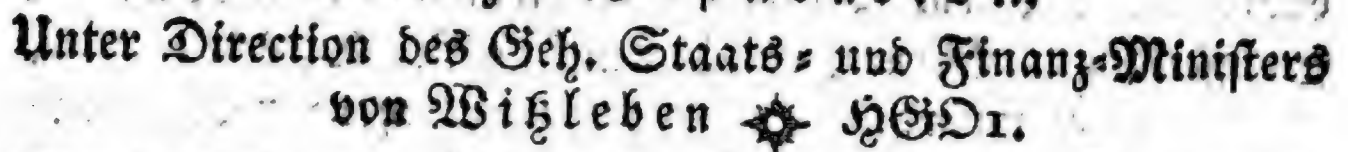 Unter Direction des Geh. Staats- und Finanz-Ministers
von Witzleben HGO1.